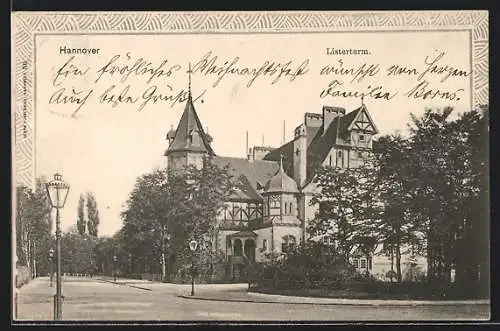 Hannover
Listerturm.
Ein fröhliches Weihnachtsfest wünscht von Herzen
Auch beste Grüße. Familie Borns.